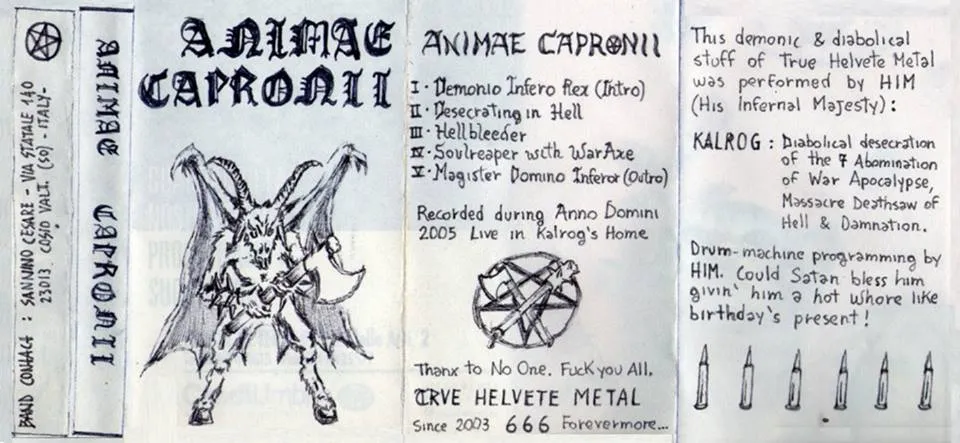 BAND CONTACT : SANNINO CESARE - VIA STATALE 140
23013. COSIO VALT. (SO) - ITALY-
ANIMAE CAPRONII
ANIMAE
CAPRONII
ANIMAE CAPRONII
I · Demonio Infero Rex (Intro)
II · Desecrating in Hell
III · Hellbleeder
IV · Soulreaper with WarAxe
V · Magister Domino Inferor (Outro)
Recorded during Anno Domini
2005 Live in Kalrog's Home
Thanx to No One. Fuck you All.
TRVE HELVETE METAL
Since 2003 666 Forevermore...
This demonic & diabolical
stuff of True Helvete Metal
was performed by HIM
(His Infernal Majesty) :
KALROG : Diabolical desecration
of the 7 Abomination
of War Apocalypse,
Massacre Deathsaw of
Hell & Damnation.
Drum-machine programming by
HIM. Could Satan bless him
givin' him a hot whore like
birthday's present!